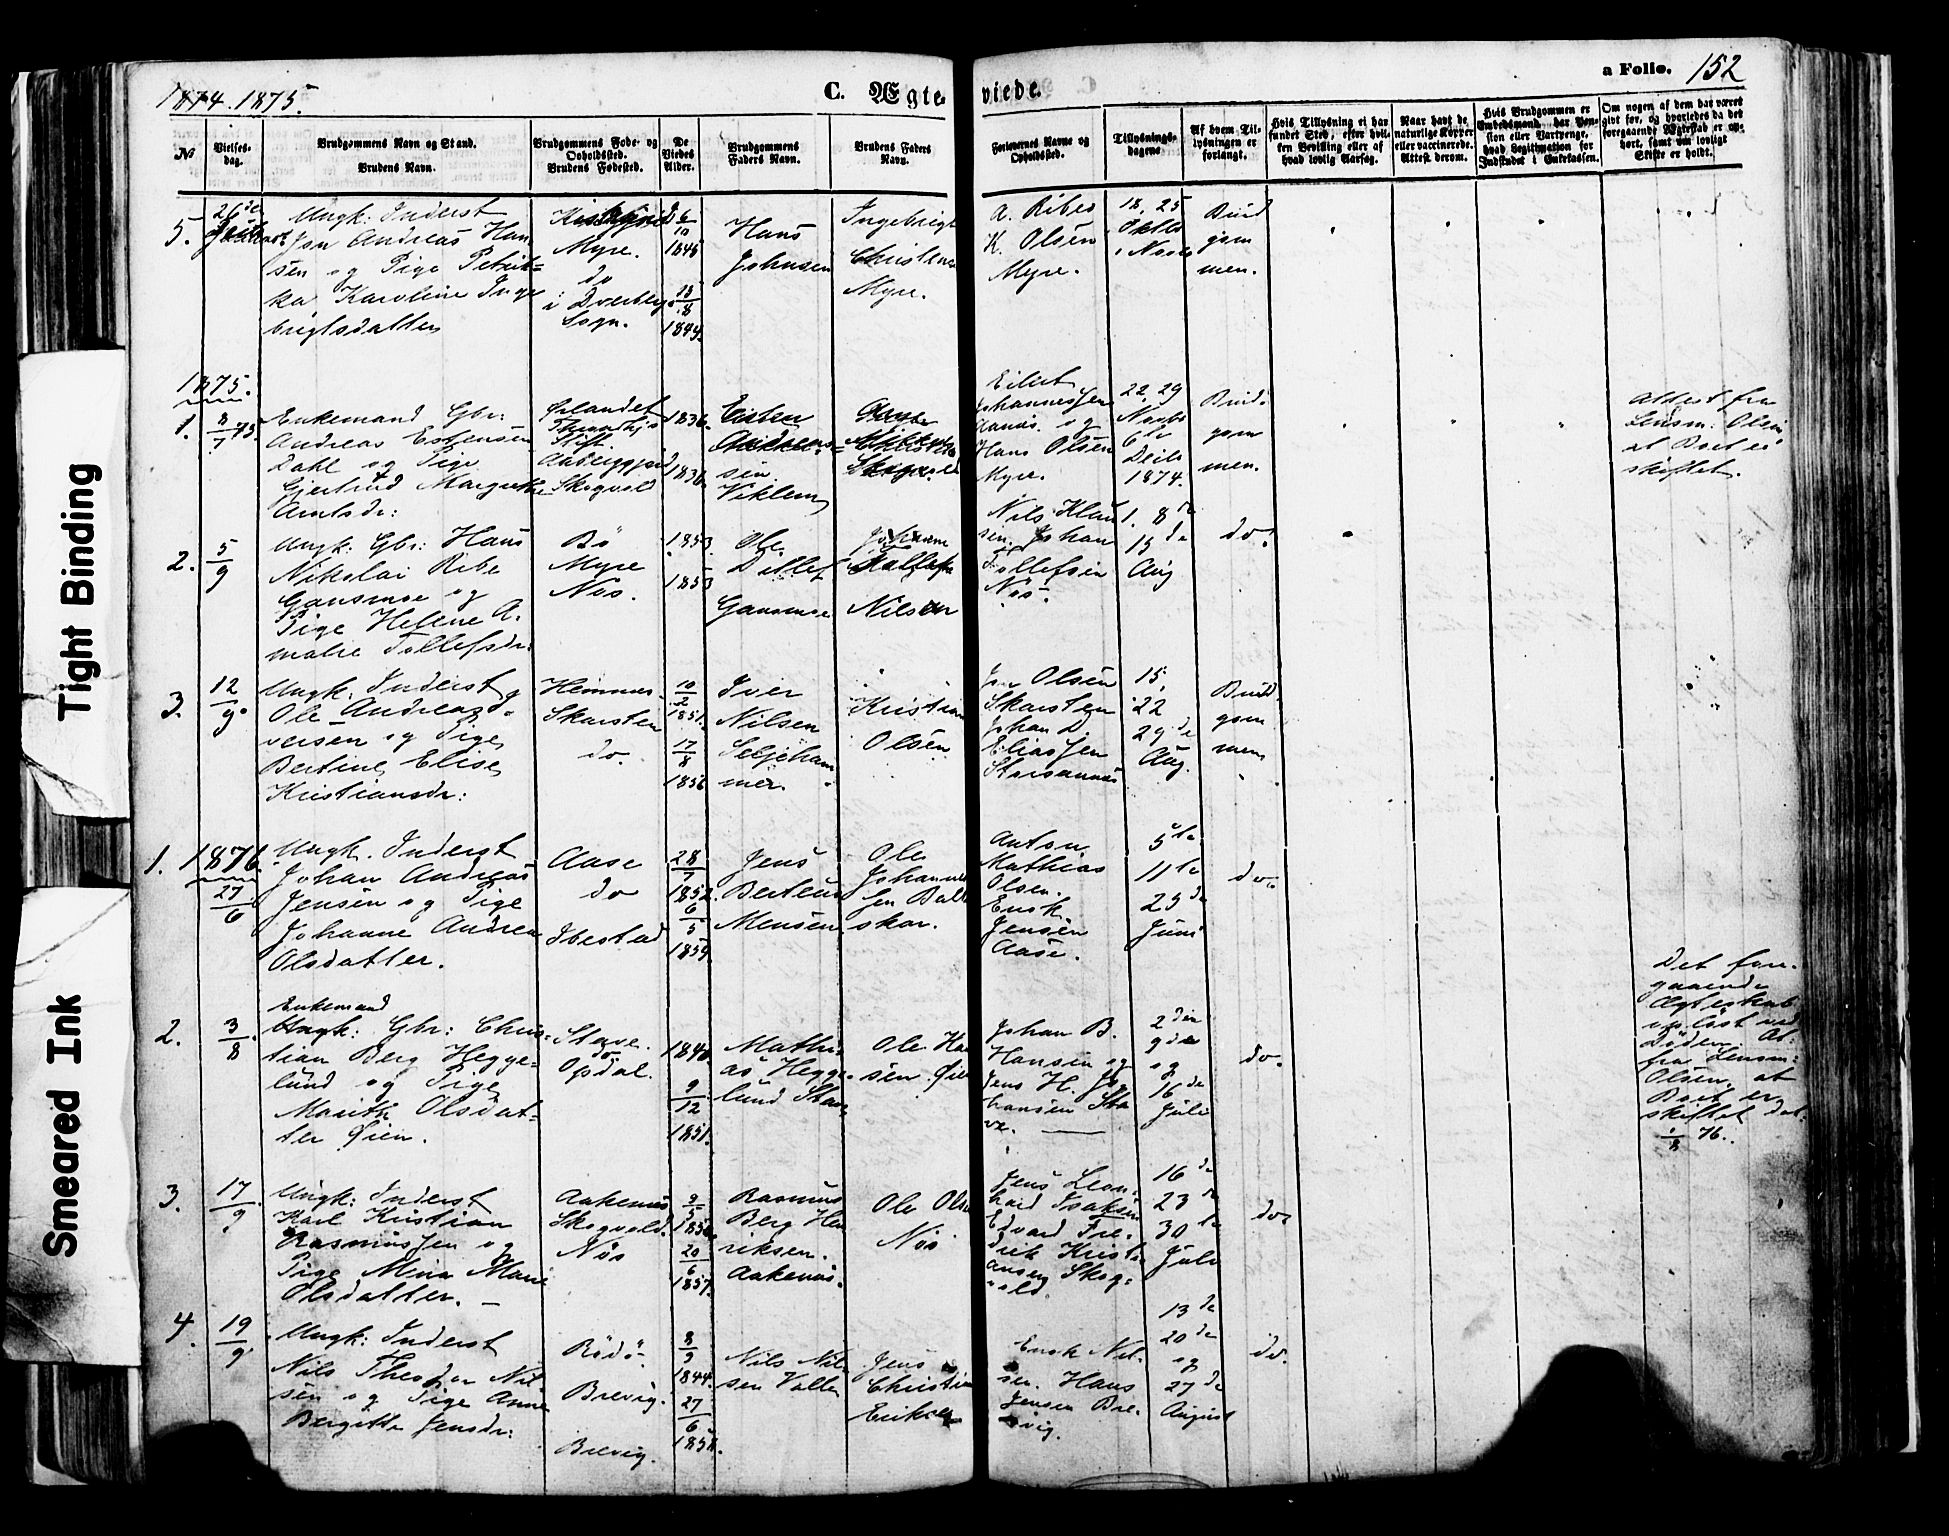 1874. 1875.
C. Ægteviede.
a Folio. 152
No
Vielses-
dag.
Brudgommens Navn og Stand.
Brudens Navn.
Brudgommens Føde- og
Opholdssted.
Brudens Fødested.
De
Viedes
Alder.
Brudgommens
Faders Navn.
Brudens Faders
Navn.
Forlovernes Navne og
Opholdssted.
Tillysnings-
dagene
Af hvem Til-
lysningen er
forlangt.
Hvis Tillysning ei har
fundet Sted, efter hvil-
ken Bevilling eller af
hvad lovlig Aarsag.
Naar havt de
naturlige Kopper
eller vaccinerede.
Attest derom.
Hvis Brudgommen er
Embedsmand, har Pen-
sion eller Vartpenge,
hvad Legitimation for
Indskudet i Enkekassen.
Om nogen af dem har været
gift før, og hvorledes da det
foregaaende Ægteskab er op-
hørt, samt om lovligt
Skifte er holdt.
5.
26de
Ungk: Inderst
Jon Andreas Han
sen og Pige Petrik=
ka Karoline Inge
brigtsdatter
Myre.
do
i Dverberg
Sogn.
6/10
1845
15/8
1844.
Hans
Johnsen
Ingebrigt
Christens
Myre.
A. Ribes
K. Olsen
Myre.
18. 25
Oktbr
1 Novbr
Brud
gom
men.
1875.
1.
8/7 75.
Enkemand Gbr:
Andreas Estensen
Dahl og Pige
Gjertrud Margrethe
Arntsdr:
Ørlandet
Stift.
Skogvold
1836.
1836.
Esten
Andreas=
sen
Viklem
Skogvold
Eilert
Johannessen
Aanæs. og
Hans Olsen
Myre.
22, 29
Novbr
6te
Decbr
1874.
Brud=
gom
men.
Attest fra
Lensm: Olsen
at Boet er
skiftet.
2.
5/9
Ungk: Gbr: Hans
Nikolai Ribe
Gansmoe og
Pige Helene A.
malie Tollefsdr:
Bö
Myre
Nös.
1853.
1853
Ole
Detlef
Gansmoe
Johan
Tollefsen
Nilsen
Nils Klau
sen. Johan
Tollefsen
Nös.
1. 8de
15de
Aug
do.
3.
12/9.
Ungk. Inderst
Ole Andreas I-
versen og Pige
Bertine Elise
Kristiansdr:
Hemnes.
Skarsten
do.
10/2
1851.
17/8
1856
Iver
Nilsen
Seljeham
mer.
Kristian
Olsen
Jon Olsen
Skarsten
Johan D.
Eliassen
15.
22
29de
Aug.
Brud.
gom
men
1. 1876.
27/6
Ungk. Inderst
Johan Andreas
Jensen og Pige
Johanne Andrea
Olsdatter.
Aase
do
Ibestad
28/7
1852.
6/5
1859.
Jens
Berteus
Mensen.
Ole
Johannes
sen Balte
skar.
Anton
Mathias
Olsen.
Enok
Jensen
Aase.
5te
11te
25de
Juni
do.
2.
3/8.
Enkemand
Ungk: Gbr: Chris-
tian Berg Hegge=
lund og Pige
Marith Olsdat=
ter Øien.
Stave.
do
Opdal.
1840
9/12
1851.
Mathi-
as Hegge-
lund Stave
Ole Han
sen Øien
Johan B.
Hansen og
Jens H. Jo
hansen Sta
ve.
2den
9de
og
16de
Juli
do.
Det fore-
gaaende
Ægteskab
opløst ved
Døden. At.
fra Lensm:
Olsen. at
Boet er
skiftet dat.
1/8 76.
3.
17/9.
Ungk: Inderst
Karl Kristian
Rasmussen og
Pige Mina Marie
Olsdatter. —
Aakenæs
Skogvold.
Nös
20/6
1857.
Rasmus
Berg Hen
riksen.
Aakenæs.
Ole Olsen
Nös
Jens Leon-
hard Isaksen
Edvard Fre-
drik Kristi
ansen Skog=
vold.
16de
23de
30te
Juli
do.
4.
19/9.
Ungk: Inderst
Nils Theodor Nil
sen og Pige Anne
Bergitte Jensdr:
Rödö.
Brevig.
Brevig.
8/9
1844.
27/6
1858.
Nils Nil
sen Valla
Jens
Christian
Eriksen
Enok Nil-
sen. Hans
Jensen Bre-
vig.
13de
20de
og
27de
August
do.
Tight Binding
Smeared Ink